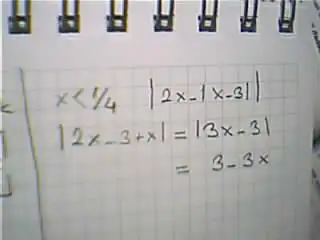 x < 1/4 |2x-|x-3||
|2x-3+x| = |3x-3|
= 3-3x